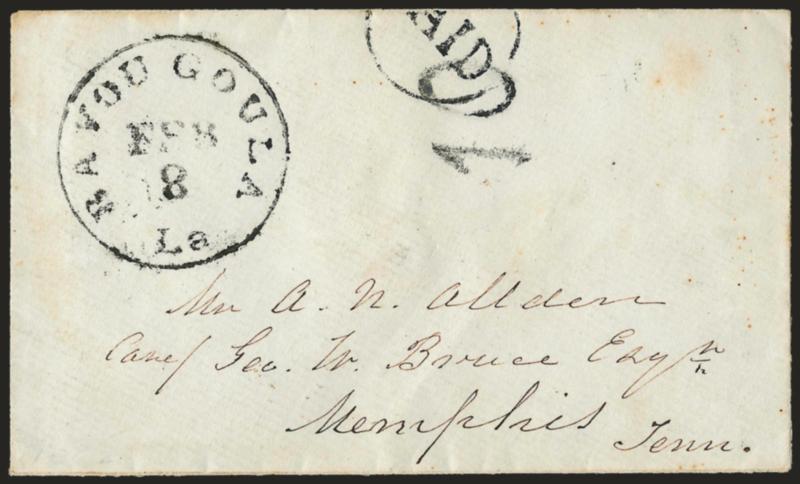 BAYOU GOULA
FEB
8
La
PAID
10
Mr A. N. Allden
Care/ Geo. W. Bruce Esqr
Memphis Tenn.